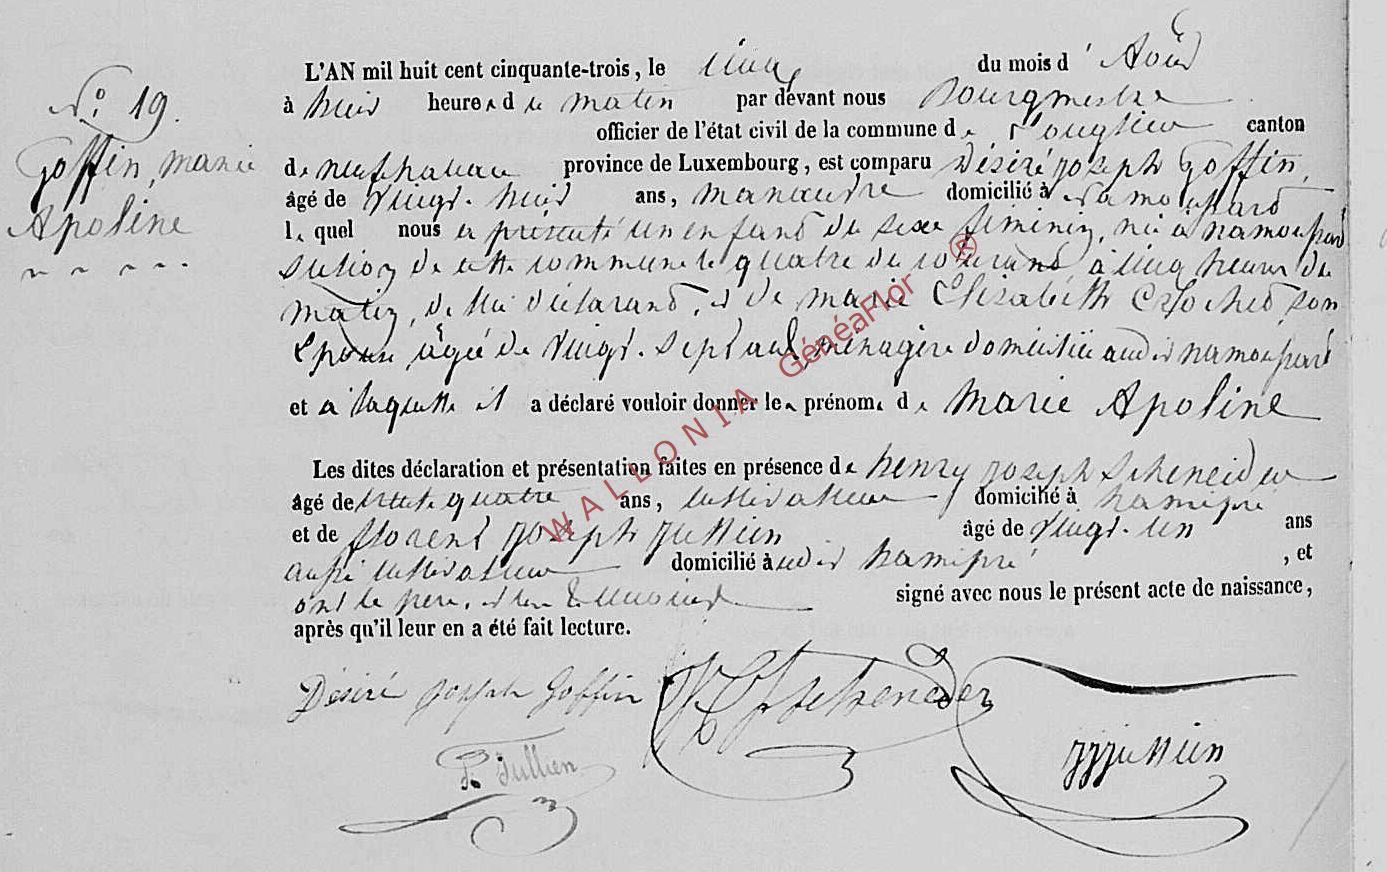 N° 19.
Goffin, marie
Apoline
L'AN mil huit cent cinquante-trois, le cinq du mois d' Août
à huit heures d u matin par devant nous Bourgmestre
officier de l'état civil de la commune d e canton
de neufchateau province de Luxembourg, est comparu Désiré joseph Goffin,
âgé de vingt-huit ans, manœuvre domicilié à namoupard
lequel nous a présenté un enfant du sexe féminin, née à namoupard
section de cette commune le quatre du courant, à cinq heures du
matin, de lui déclarant, et de marie Elisabeth son
Epouse âgée de vingt-sept ans, ménagère domiciliée audit namoupard
et a laquelle il a déclaré vouloir donner les prénoms de marie Apoline
Les dites déclaration et présentation faites en présence de henry joseph Scheneider
âgé de trente quatre ans, cultivateur domicilié à hamipré
et de florent joseph jullien âgé de vingt-un ans
aussi cultivateur domicilié à udit hamipré , et
ont le père, et les témoins signé avec nous le présent acte de naissance,
après qu'il leur en a été fait lecture.
Désiré joseph Goffin
Scheneider
jullien
Jullien
WALLONIA GénéaFlor ®